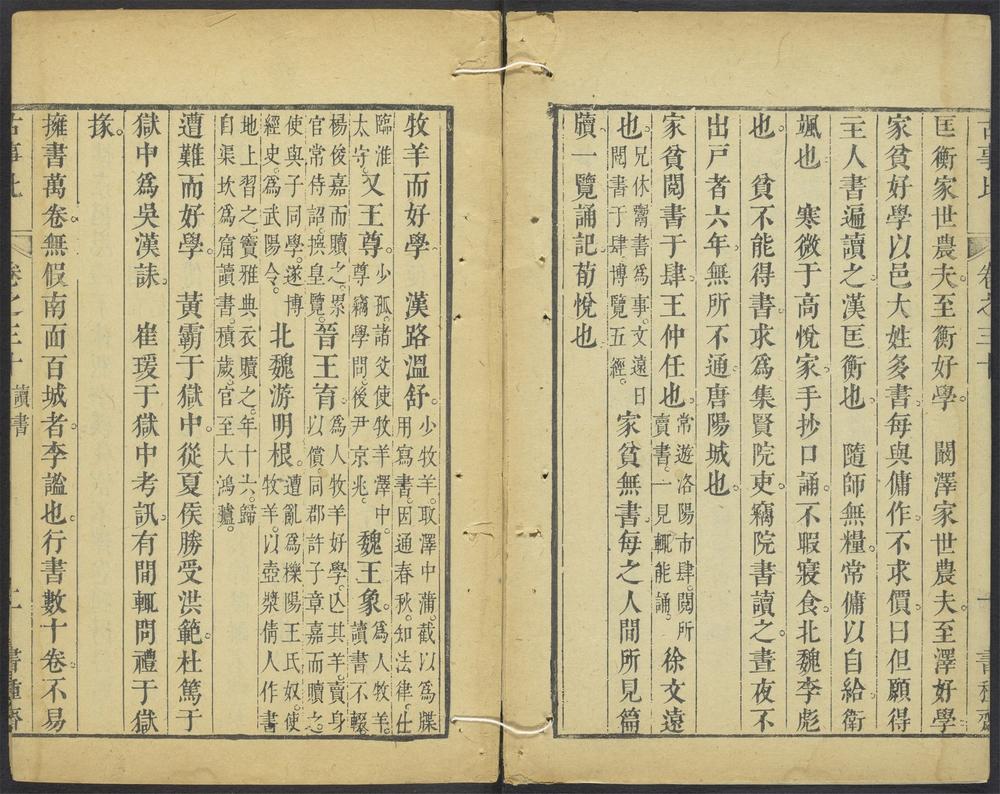 古事比 卷之三十 一 書種齋
匡衡家世農夫。至衡好學。 闞澤家世農夫。至澤好學。
家貧好學以邑大姓多書。每與傭作。不求價。曰但願得
主人書遍讀之。漢匡衡也。 隨師無糧。常傭以自給。衛
颯也 寒微于高悅家。手抄口誦。不暇寢食。北魏李彪
也。 貧不能得書。求爲集賢院吏。竊院書讀之。晝夜不
出戶者六年。無所不通。唐陽城也。
家貧閱書于肆。王仲任也。常遊洛陽市肆。閱所賣書。一見輒能誦。 徐文遠
也。兄休鬻書爲事。文遠日閱書于肆。博覽五經。 家貧無書。每之人間。所見篇
牘一覽誦記。荀悅也
牧羊而好學。 漢路溫舒。少牧羊。取澤中蒲。截以爲牒用寫書。因通春秋。知法律。仕
臨淮太守。又王尊。少孤。諸父使牧羊澤中。尊竊學問。後尹京兆。魏王象。爲人牧羊。讀書不輟。
楊俊嘉而贖之。累官常侍。詔撰皇覽。晉王育。爲人牧羊好學。亾其羊。賣身以償。同郡許子章嘉而贖之。
使與子同學。遂博經史。爲武陽令。 北魏游明根。遭亂爲櫟陽王氏奴。使牧羊。以壺漿倩人作書
地上習之。竇雅典衣贖之。年十六。歸自渠坎爲窟讀書積歲。官至大鴻臚。
遭難而好學。 黃霸于獄中。從夏侯勝受洪範。杜篤于
獄中爲吳漢誄。 崔瑗于獄中考訊。有間輒問禮于獄
掾。
擁書萬卷。無假南面百城者。李謐也。行書數十卷。不易
古事比 卷之三十 讀書 二 書種齋